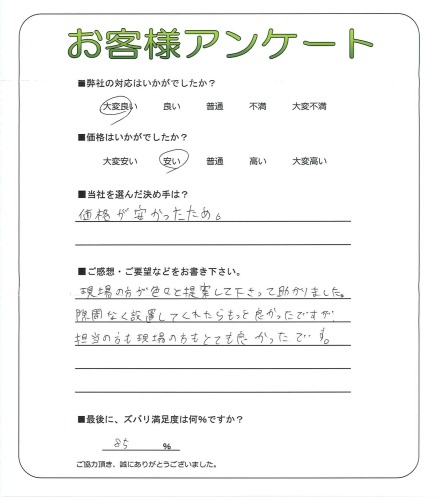 お客様アンケート
■弊社の対応はいかがでしたか？
大変良い 良い 普通 不満 大変不満
■価格はいかがでしたか？
大変安い 安い 普通 高い 大変高い
■当社を選んだ決め手は？
価格が安かったため。
■ご感想・ご要望などをお書き下さい。
現場の方が色々と提案して下さって助かりました。
隙間なく設置してくれたらもっと良かったですが、
担当の方も現場の方もとても良かったです。
■最後に、ズバリ満足度は何％ですか？
85 ％
ご協力頂き、誠にありがとうございました。